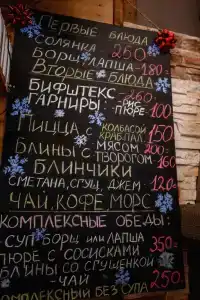 Первые блюда
Солянка 260
Борщ, лапша - 180=
Вторые блюда
Бифштекс - 260
Гарниры: -рис
-пюре 100
Пицца с колбасой
крабпал 150
Блины с мясом 200=
с творогом 160
Блинчики
сметана, сгущ, джем - 120=
Чай, кофе морс
Комплексные обеды:
-суп борщ или лапша
Пюре с сосисками 350=
Блины со сгущенкой
-чай
Комплексный без супа 250=